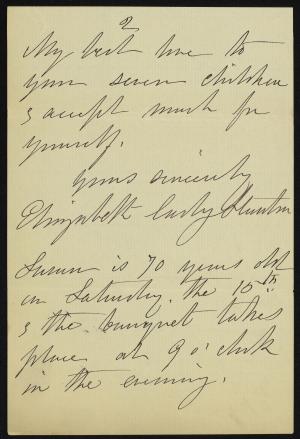 2
My best love to
your seven children
& accept much for
yourself.
yours sincerely
Elizabeth Cady Stanton
Susan is 70 years old
on Saturday, the 15th
& the banquet takes
place at 9 o'clock
in the evening.